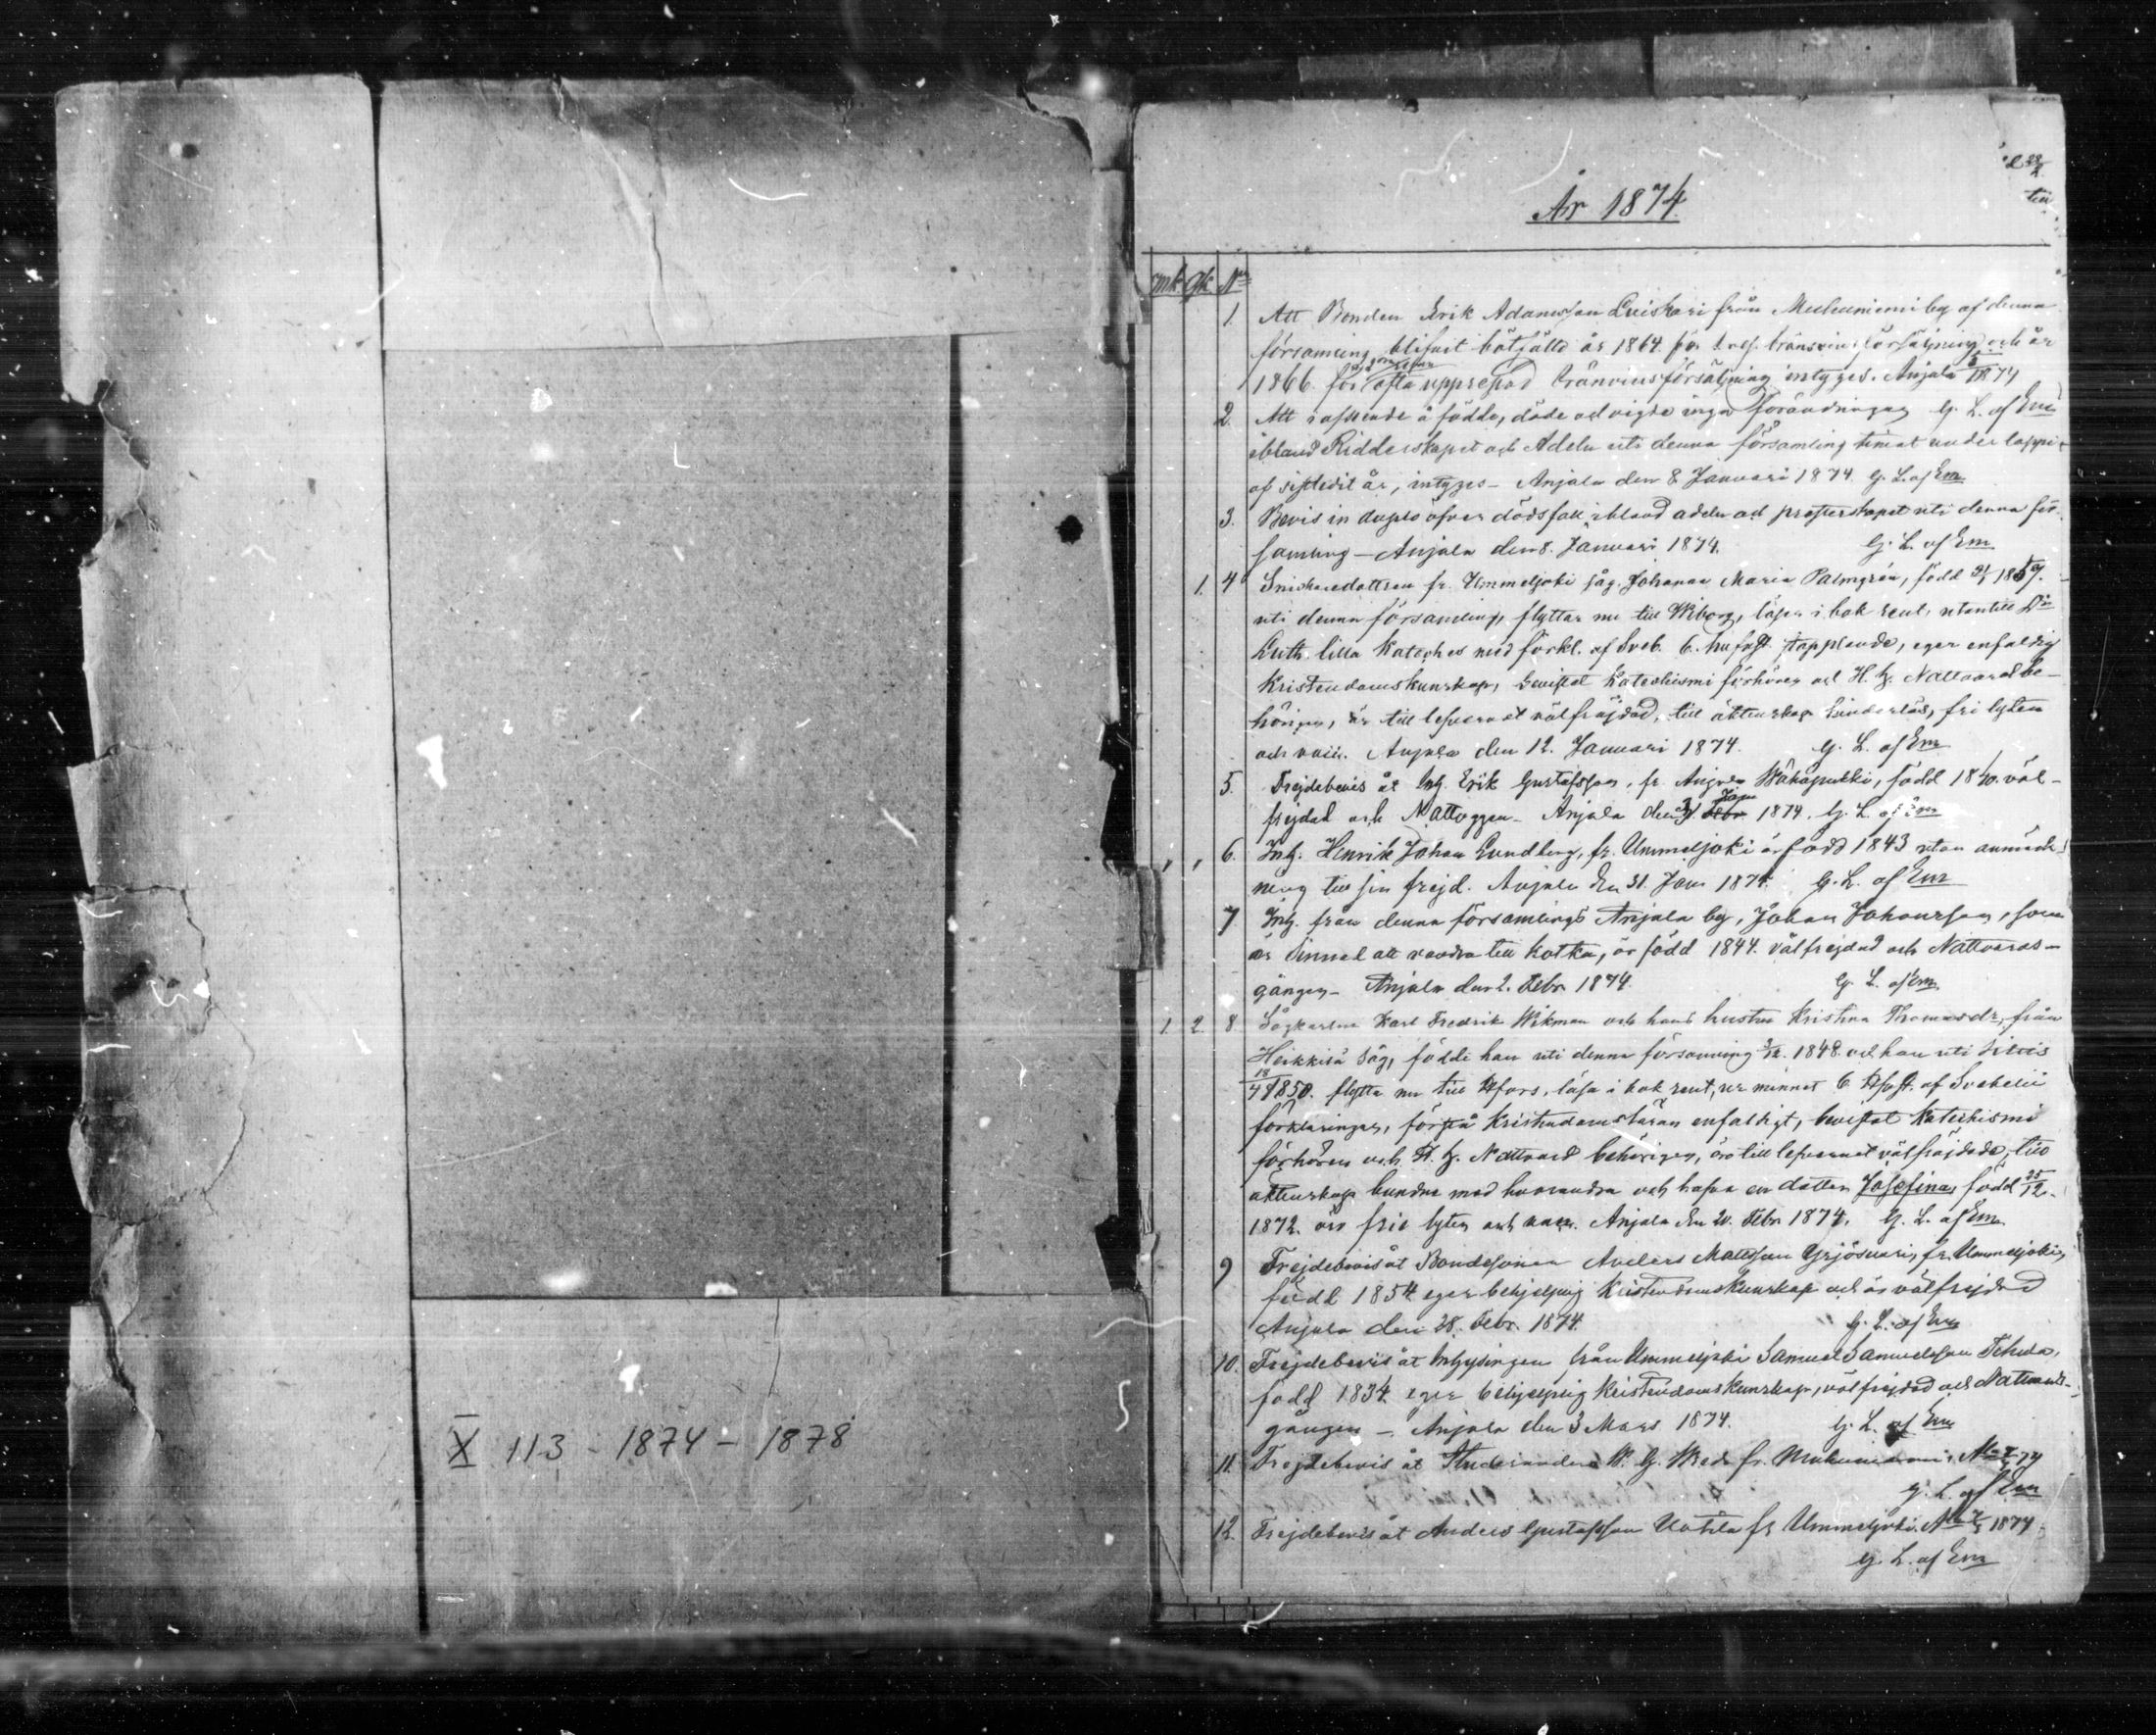 X 113 - 1874 - 1878
År 1874
mk qk No
1. Att Bonden Erik Adamsson från by af denna
församling blifvit bötfälld år 1864 för försäljning och år
1866 för upprepad bränvinsförsäljning intyges. Anjala 74
2. Att rörande födde, döde och vigde inga förändringar G. L. af Em
ibland Ridderskapet och Adeln uti denna församling timat under loppet
af sistledit år, intyges - Anjala den 8 Januari 1874. G. L. af Em
3. Bevis in duplo öfver dödsfall ibland adeln och presterskapet uti denna för-
samling - Anjala den 8. Januari 1874. G. L. af Em
1. 4 Snickaredottren fr. Ummeljoki Johanna Maria Palmgrén, född
uti denna församling, flyttar nu till Wiborg, läser i bok rent, utantill Dr
Luth. lilla Kateches med förkl. af Sveb. 6. hufvst. stapplande, eger enfaldig
Kristendomskunskap, bevistat Katechismi förhören och H. H. Nattvard be-
hörigen, är till lefvernet välfräjdad, till äktenskap hinderlös, fri lyten
och vacc. Anjala den 12. Januari 1874. G. L. af Em
5. Frejdebevis åt Inh. Erik Gustafsson, fr. Anjala född 1840. väl-
frejdad och Nattvggen - Anjala den 31 Jan 1874. G. L. af Em
6. Inh. Henrik Johan Lundberg, fr. Ummeljoki är född 1843 utan anmärk-
ning till sin frejd. Anjala den 31. Jan 1874. G. L. af Em
7 Inh. från denna församlings Anjala by, Johan Johansson, som
är sinnad att vandra till Kotka, är född 1844. välfrejdad och Nattvards-
gången - Anjala den 2. Febr 1874. G. L. af Em
1 2 8 Sågkarlen Karl Fredrik Wikman och hans hustru Kristina Thomasdr, från
såg, född han uti denna församling 1848. och hon uti
1850. flytta nu till Hfors, läsa i bok rent, ur minnet 6 Hfst. af Svebelii
förklaringar, förstå Kristendomsläran enfaldigt, bevistat Katechismi
förhören och H. H. Nattvard behörigen, äro till lefvernet välfräjdade, till
äktenskap bundna med hvarandra och hafva en dotter Josefina, född 25/12
1872. äro frie lyten och vacc. Anjala den 20. Febr 1874. G. L. af Em
9 Frejdebevis åt Bondesonen Anders Mattsson fr. Ummeljoki,
född 1854 eger behjelplig Kristendomskunskap och är välfrejdad
Anjala den 28. Febr. 1874. G. L. af Em
10. Frejdebevis åt Inhysingen från Ummeljoki Samuel Samuelsson
född 1834 eger behjelplig Kristendomskunskap, välfrejdad och Nattvards-
gången - Anjala den 3 Mars 1874. G. L. af Em
11. Frejdebevis åt Studeranden W. G. fr. 74
G. L. af Em
12. Frejdebevis åt Anders Gustafsson Uotila fr Ummeljoki. 1874.
G. L. af Em